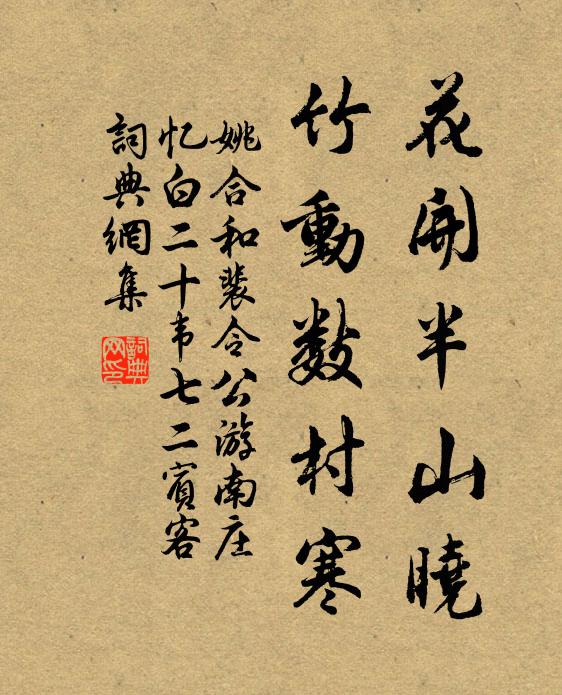 花開半山曉
竹動數村寒
姚合和裴令公游南庄
忆白二十韦七二賓客
詞典網集
詞典网印